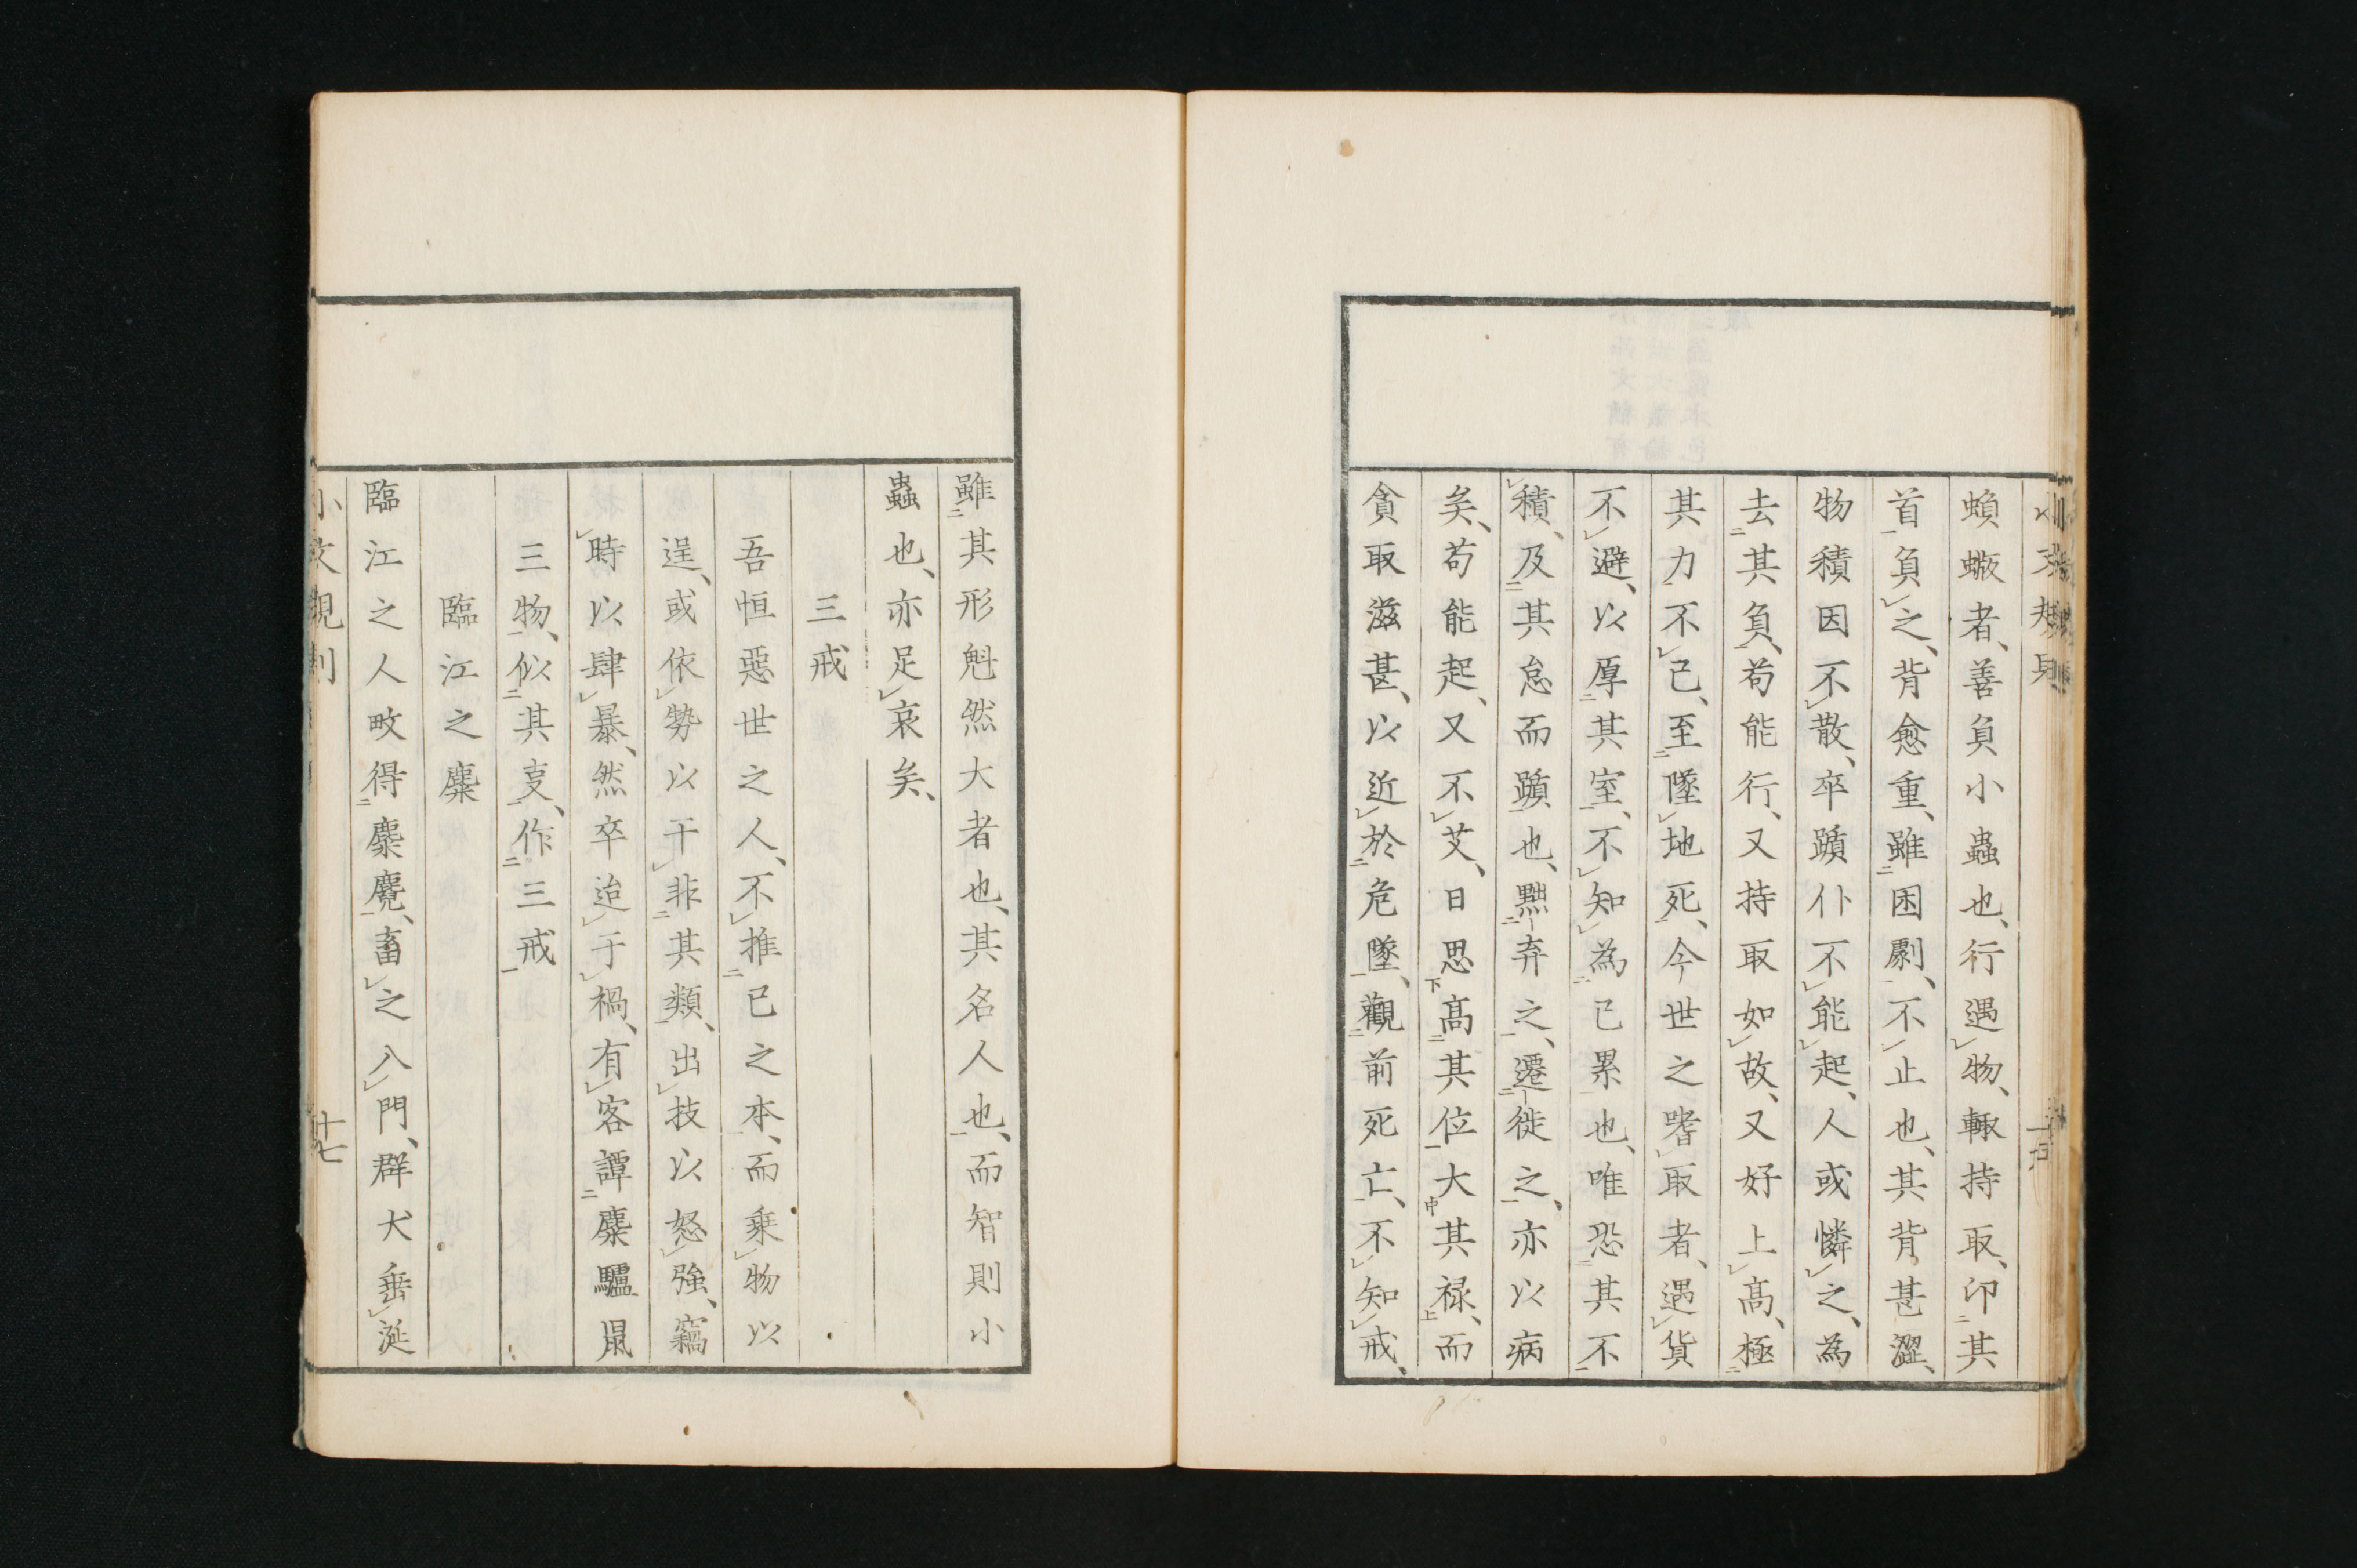 蝜蝂者、善負小蟲也、行遇物、輙持取、卬其
首負之、背愈重、雖困劇、不止也、其背甚澀、
物積因不散、卒躓仆不能起、人或憐之、為
去其負、苟能行、又持取如故、又好上髙、極
其力不已、至墜地死、今世之嗜取者、遇貨
不避、以厚其室、不知為己累也、唯恐其不
積、及其怠而躓也、黜弃之、遷徙之、亦以病
矣、苟能起、又不艾、日思髙其位大其禄、而
貪取滋甚、以近於危墜、觀前死亡、不知戒、
雖其形魁然大者也、其名人也、而智則小
蟲也、亦足哀矣、
三戒
吾恒惡世之人、不推己之本、而乗物以
逞、或依勢以干非其類、出技以怒強、竊
時以肆暴、然卒迨于禍、有客譚麋驢鼠
三物、似其事、作三戒
臨江之麋
臨江之人畋得麋麑、畜之入門、群犬垂涎
小文規則
十七